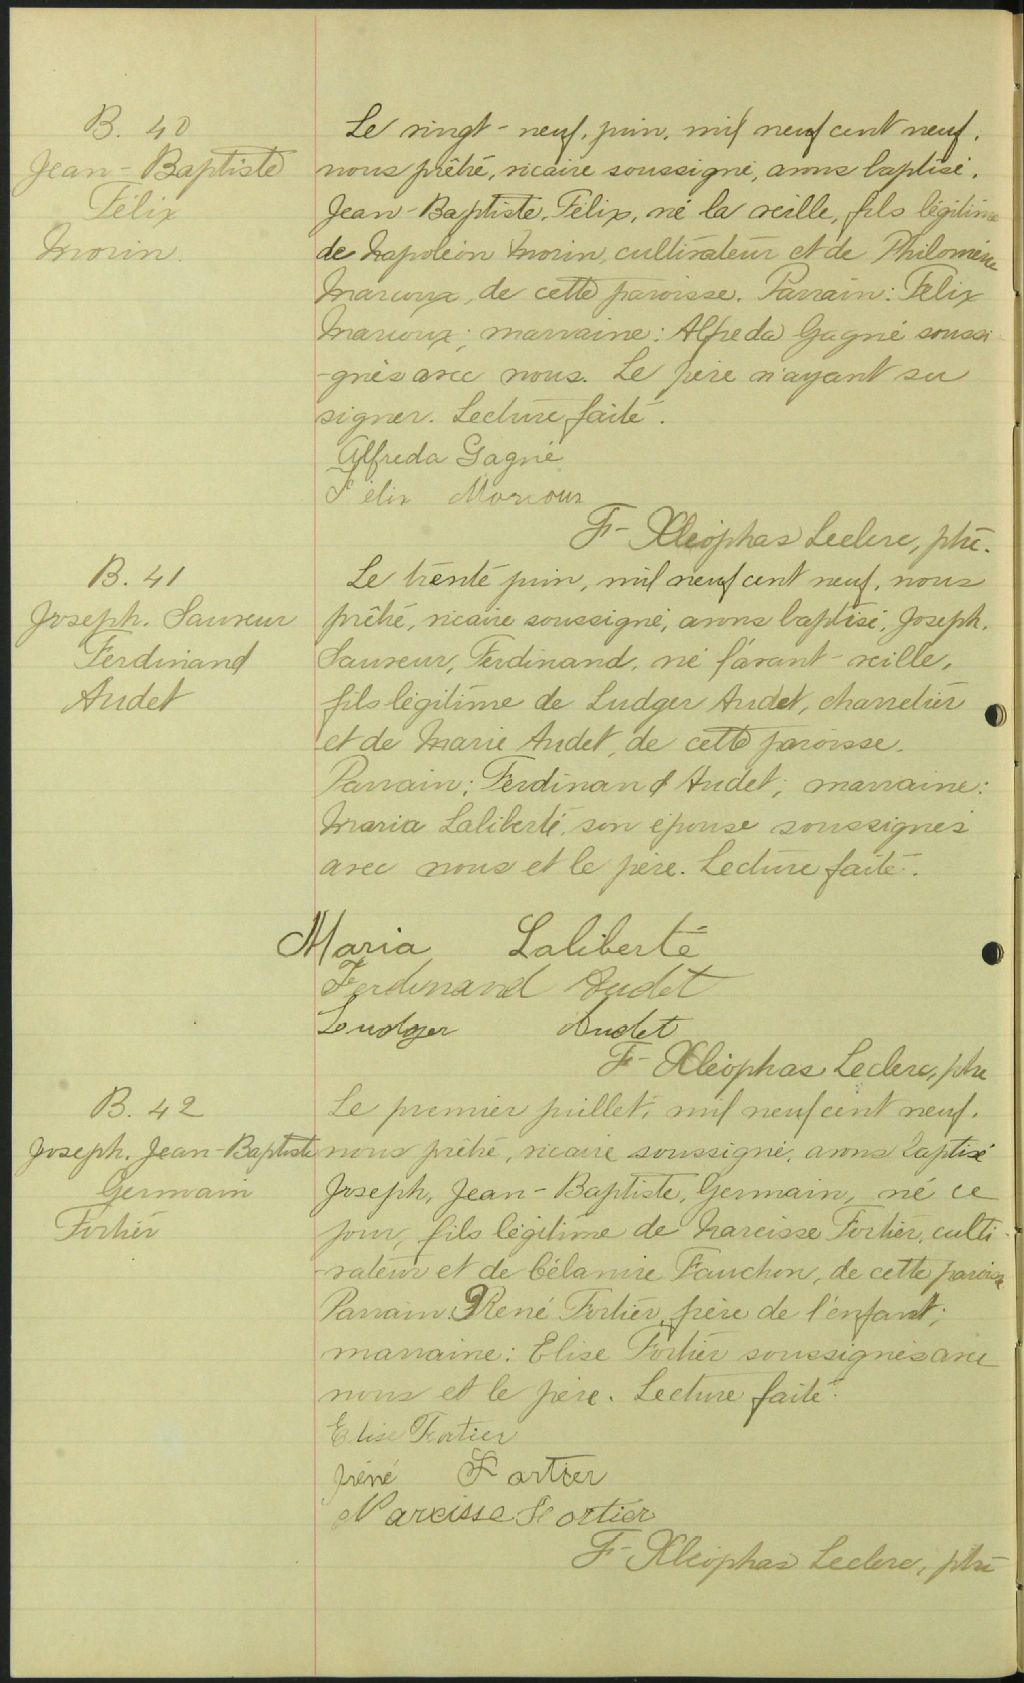 B. 40
Jean-Baptiste
Félix
Morin.
Le vingt-neuf, juin, mil neuf cent neuf,
nous prêtre, vicaire soussigné, avons baptisé,
Jean-Baptiste, Félix, né la veille, fils légitime
de Napoléon Morin, cultivateur et de Philomène
Marcoux, de cette paroisse. Parrain: Félix
Marcoux; marraine: Alfreda Gagné soussi-
-gnés avec nous. Le père n'ayant su
signer. Lecture faite.
Alfreda Gagné
Félix Marcoux
F-Xléophas Leclerc, ptre.
B. 41
Joseph. Sauveur
Ferdinand
Audet
Le trente juin, mil neuf cent neuf, nous
prêtre, vicaire soussigné, avons baptisé, Joseph.
Sauveur, Ferdinand, né l'avant-veille,
fils légitime de Ludger Audet, charretier
et de Marie Audet, de cette paroisse.
Parrain: Ferdinand Audet; marraine:
Maria Laliberté, son épouse soussignés
avec nous et le père. Lecture faite.
Maria Laliberté
Ferdinand Audet
Ludger Audet
F-Xléophas Leclerc, ptre
B. 42
Joseph. Jean-Baptiste
Germain
Fortier
Le premier juillet, mil neuf cent neuf.
nous prêtre, vicaire soussigné, avons baptisé
Joseph, Jean-Baptiste, Germain, né ce
jour, fils légitime de Narcisse Fortier, culti-
-vateur et de Célanire Fauchon, de cette paroisse
Parrain: René Fortier, frère de l'enfant;
marraine: Elise Fortier soussignés avec
nous et le père. Lecture faite.
Elise Fortier
Fortier
Narcisse Fortier
F-Xléophas Leclerc, ptre